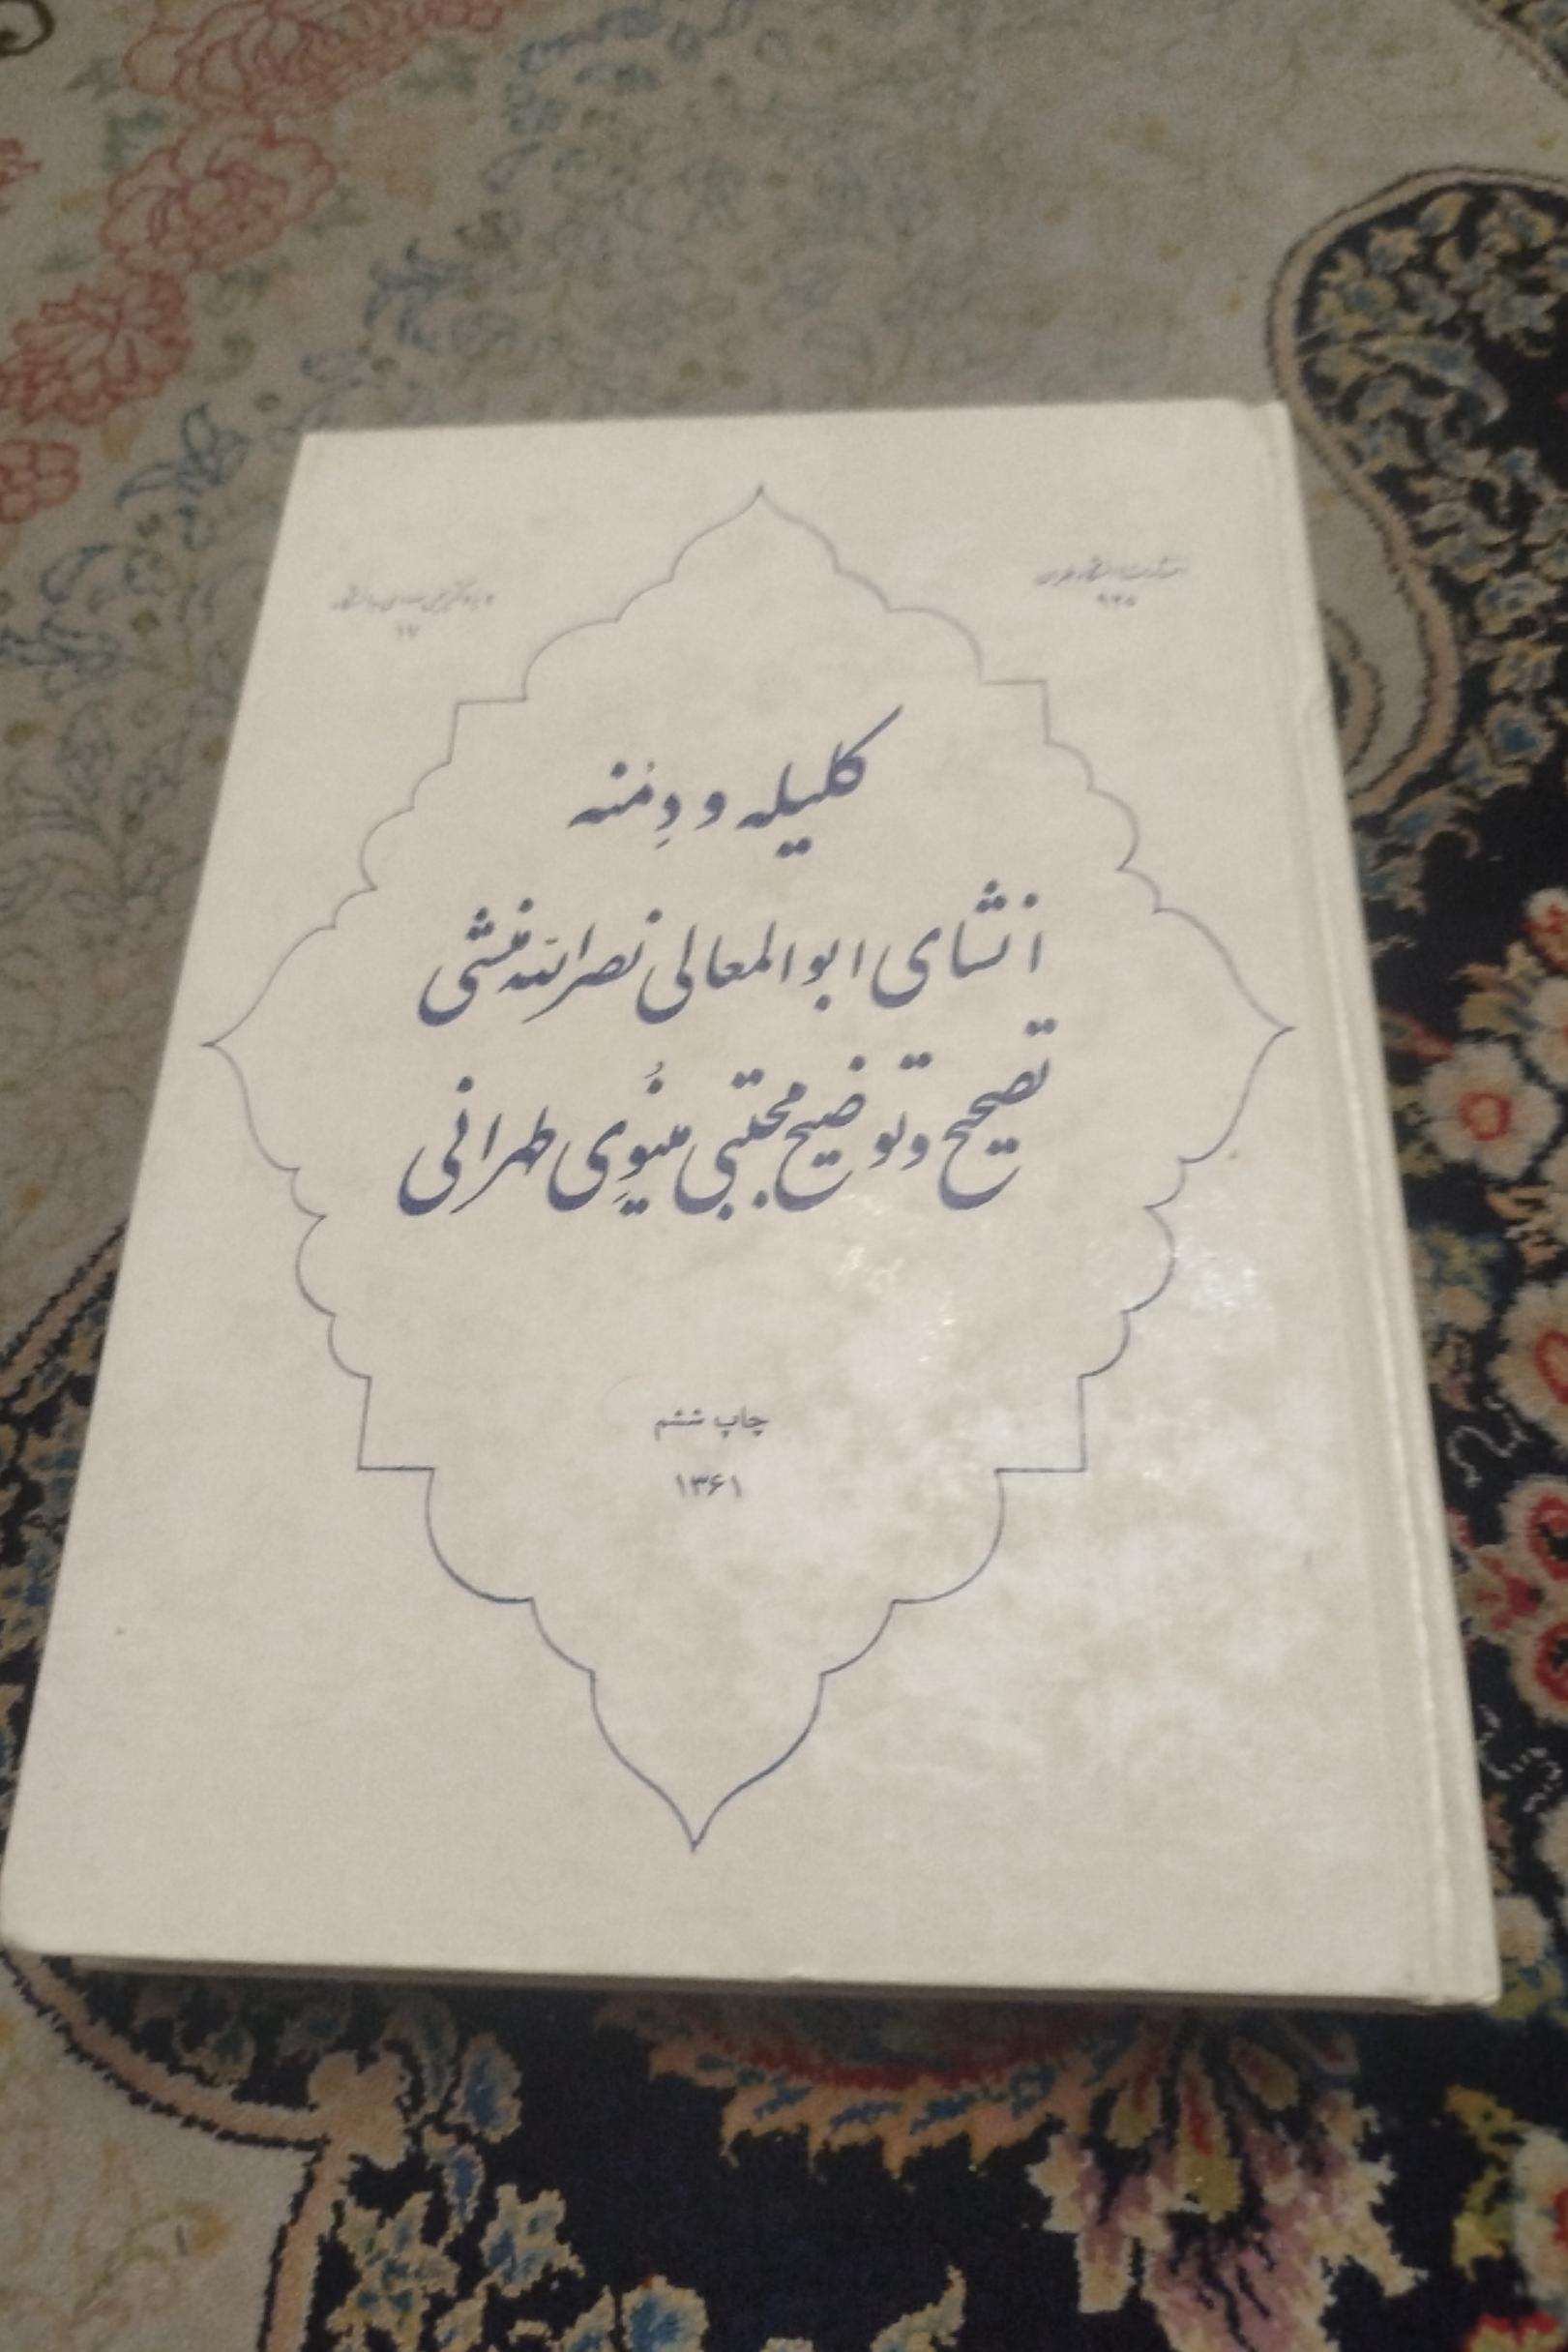 انتشارات دانشگاه طهران
۹۲۵
۱۷
کلیله و دِمْنه
انشای ابوالمعالی نصراللّه منشی
تصحیح و توضیح مجتبی مینُوِی طهرانی
چاپ ششم
۱۳۶۱